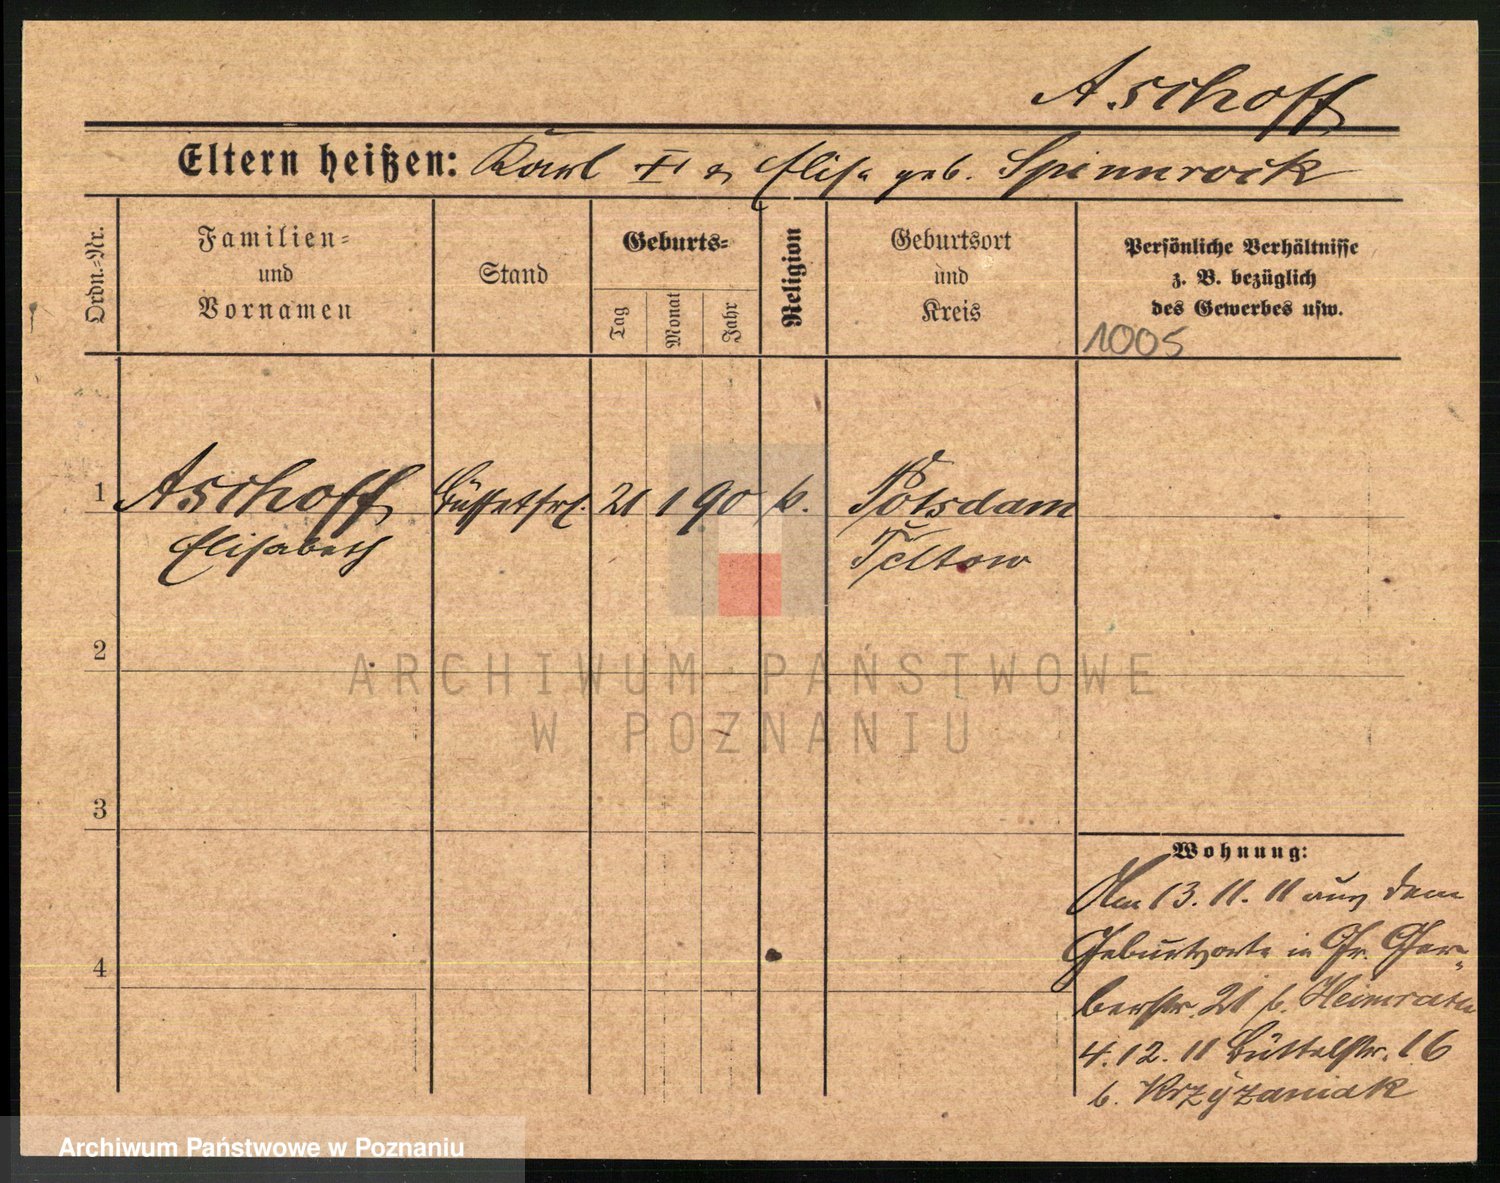 Aschoff
Eltern heißen: Karl † u. Elise geb. Spinnrock
Ordn.-Nr.
Familien-
und
Vornamen
Stand
Geburts-
Tag
Monat
Jahr
Religion
Geburtsort
und
Kreis
Persönliche Verhältnisse
z. B. bezüglich
des Gewerbes usw.
1005
1 Aschoff Büffetfrl. 21 1 90 k. Potsdam
Elisabeth Teltow
2
3
4
Wohnung:
Am 13.11.11 aus dem
Geburtsorte in Gr. Ger-
berstr. 21 b. Heimrath
4.12.11 Büttelstr. 16
b. Krzyżaniak
ARCHIWUM PAŃSTWOWE
W POZNANIU
Archiwum Państwowe w Poznaniu